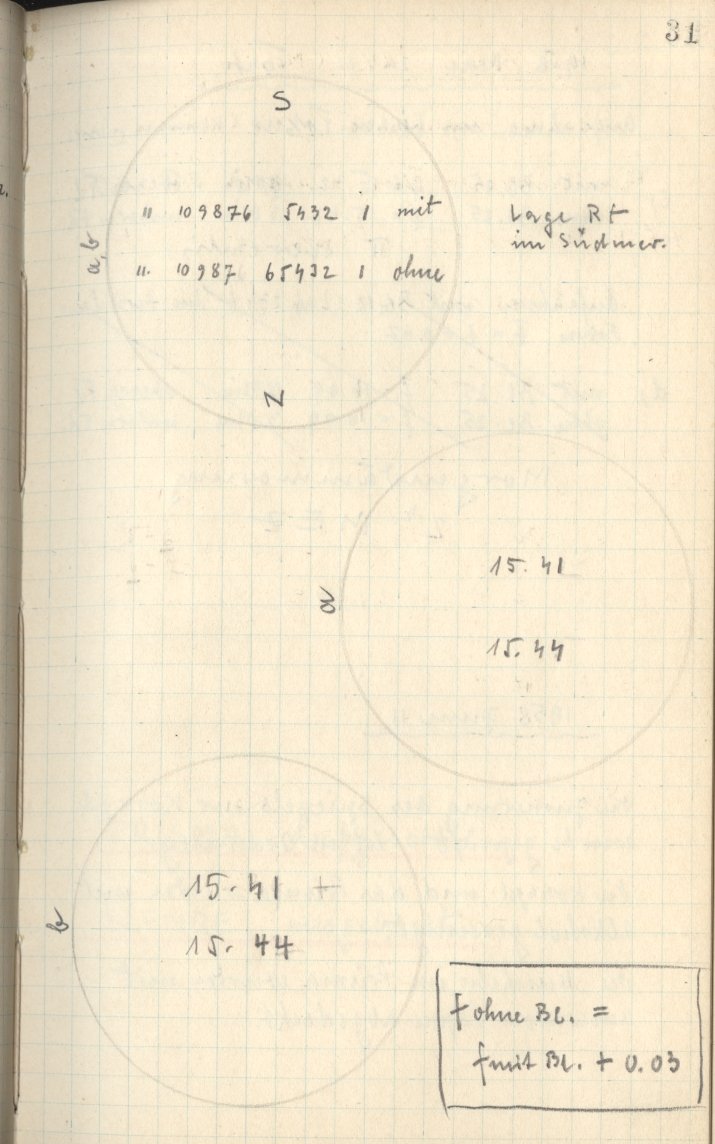 31
S
11 109876 5432 1 mit
Lage Rt
im Südmer.
a, b
11. 10987 65432 1 ohne
N
a
15.41
15.44
b
15.41 +
15.44
f ohne Bl. =
f mit Bl. + 0.03